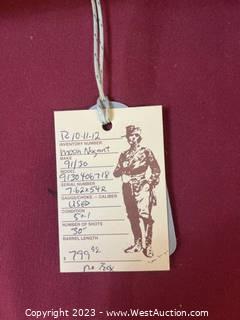 R 10-11-12
INVENTORY NUMBER
Mosin Nagant
MAKE
91/30
MODEL
9130406718
SERIAL NUMBER
7.62x54R
GAUGE/CHOKE - CALIBER
USED
CONDITION
5+1
NUMBER OF SHOTS
30"
BARREL LENGTH
$ 799
no Tax
Copyright 2023 - www.WestAuction.com